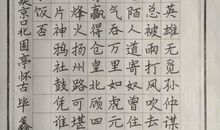 英雄无觅孙仲谋
总被雨打风吹去
陌人道寄奴曾住
气吞万里如虎元
赢得仓皇北顾四
烽火扬州路可堪
片神鸦社鼓凭谁
饭否
疾京口北固亭怀古 毕鑫